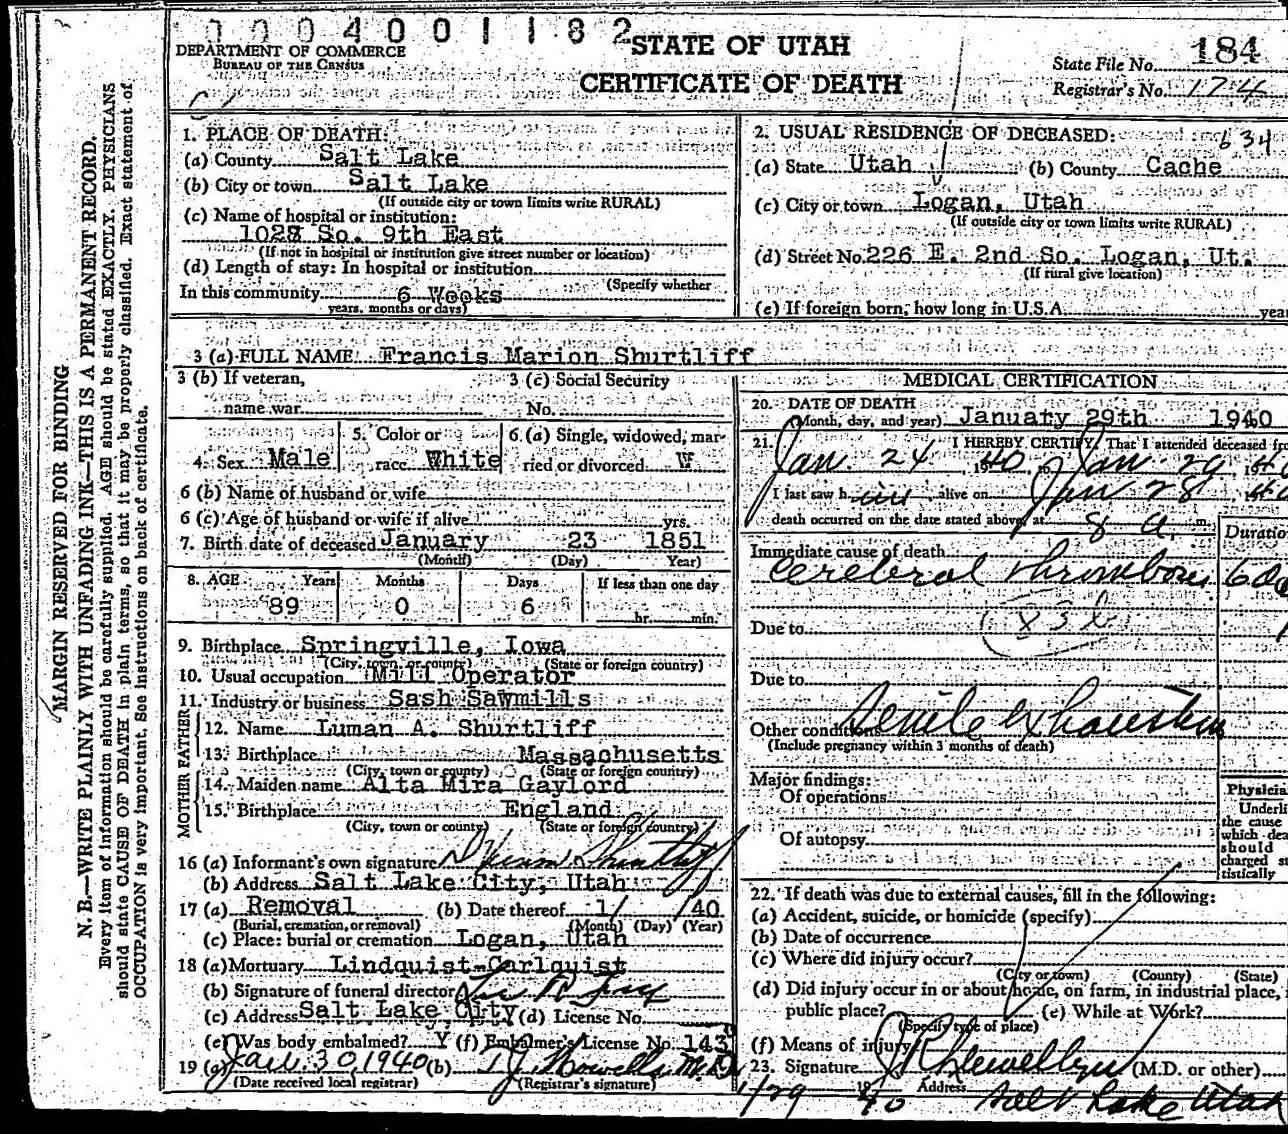 0004001182
DEPARTMENT OF COMMERCE
BUREAU OF THE CENSUS
STATE OF UTAH
CERTIFICATE OF DEATH
State File No. 184
Registrar's No. 174
1. PLACE OF DEATH:
(a) County Salt Lake
(b) City or town Salt Lake
(If outside city or town limits write RURAL)
(c) Name of hospital or institution:
1028 So. 9th East
(If not in hospital or institution give street number or location)
(d) Length of stay: In hospital or institution
(Specify whether
In this community 6 Weeks
years, months or days)
2. USUAL RESIDENCE OF DECEASED: 634
(a) State Utah (b) County Cache
(c) City or town Logan, Utah
(If outside city or town limits write RURAL)
(d) Street No. 226 E. 2nd So. Logan, Ut.
(If rural give location)
(e) If foreign born, how long in U.S.A. yea
3 (a) FULL NAME Francis Marion Shurtliff
3 (b) If veteran,
name war
3 (c) Social Security
No.
4. Sex Male
5. Color or
race White
6. (a) Single, widowed, mar-
ried or divorced W
6 (b) Name of husband or wife
6 (c) Age of husband or wife if alive yrs.
7. Birth date of deceased January 23 1851
(Month) (Day) Year)
8. AGE Years Months Days If less than one day
89 0 6 hr. min.
9. Birthplace Springville, Iowa
(City, town, or county) (State or foreign country)
10. Usual occupation Mill Operator
11. Industry or business Sash Sawmills
FATHER
12. Name Luman A. Shurtliff
13. Birthplace Massachusetts
(City, town or county) (State or foreign country)
MOTHER
14. Maiden name Alta Mira Gaylord
15. Birthplace England
(City, town or county) (State or foreign country)
16 (a) Informant's own signature Shurtliff
(b) Address Salt Lake City, Utah
17 (a) Removal (b) Date thereof 1/ /40
(Burial, cremation, or removal) (Month) (Day) (Year)
(c) Place: burial or cremation Logan, Utah
18 (a) Mortuary Lindquist-Carlquist
(b) Signature of funeral director
(c) Address Salt Lake City (d) License No.
(e) Was body embalmed? Y (f) Embalmer's License No. 143
19 (a) Jan. 30, 1940 (b) M.D.
(Date received local registrar) (Registrar's signature)
MEDICAL CERTIFICATION
20. DATE OF DEATH
(Month, day, and year) January 29th 1940
21. I HEREBY CERTIFY, That I attended deceased fro
Jan. 24 1940, to Jan 29 1940
I last saw him alive on Jan 28 1940
death occurred on the date stated above, at 8 a. m.
Duratio
Immediate cause of death
Cerebral Thrombosis 6 da
83b
Due to
Due to
Other conditions Senile exhaustion
(Include pregnancy within 3 months of death)
Major findings:
Of operations
Of autopsy
Physicia
Underli
the cause
which dea
should
charged st
tistically
22. If death was due to external causes, fill in the following:
(a) Accident, suicide, or homicide (specify)
(b) Date of occurrence
(c) Where did injury occur?
(City or town) (County) (State)
(d) Did injury occur in or about home, on farm, in industrial place,
public place? (e) While at Work?
(Specify type of place)
(f) Means of injury
23. Signature Llewellyn (M.D. or other)
1/29 1940 Address Salt Lake Utah
MARGIN RESERVED FOR BINDING
N. B.—WRITE PLAINLY WITH UNFADING INK—THIS IS A PERMANENT RECORD.
Every item of information should be carefully supplied. AGE should be stated EXACTLY. PHYSICIANS
should state CAUSE OF DEATH in plain terms, so that it may be properly classified. Exact statement of
OCCUPATION is very important. See instructions on back of certificate.